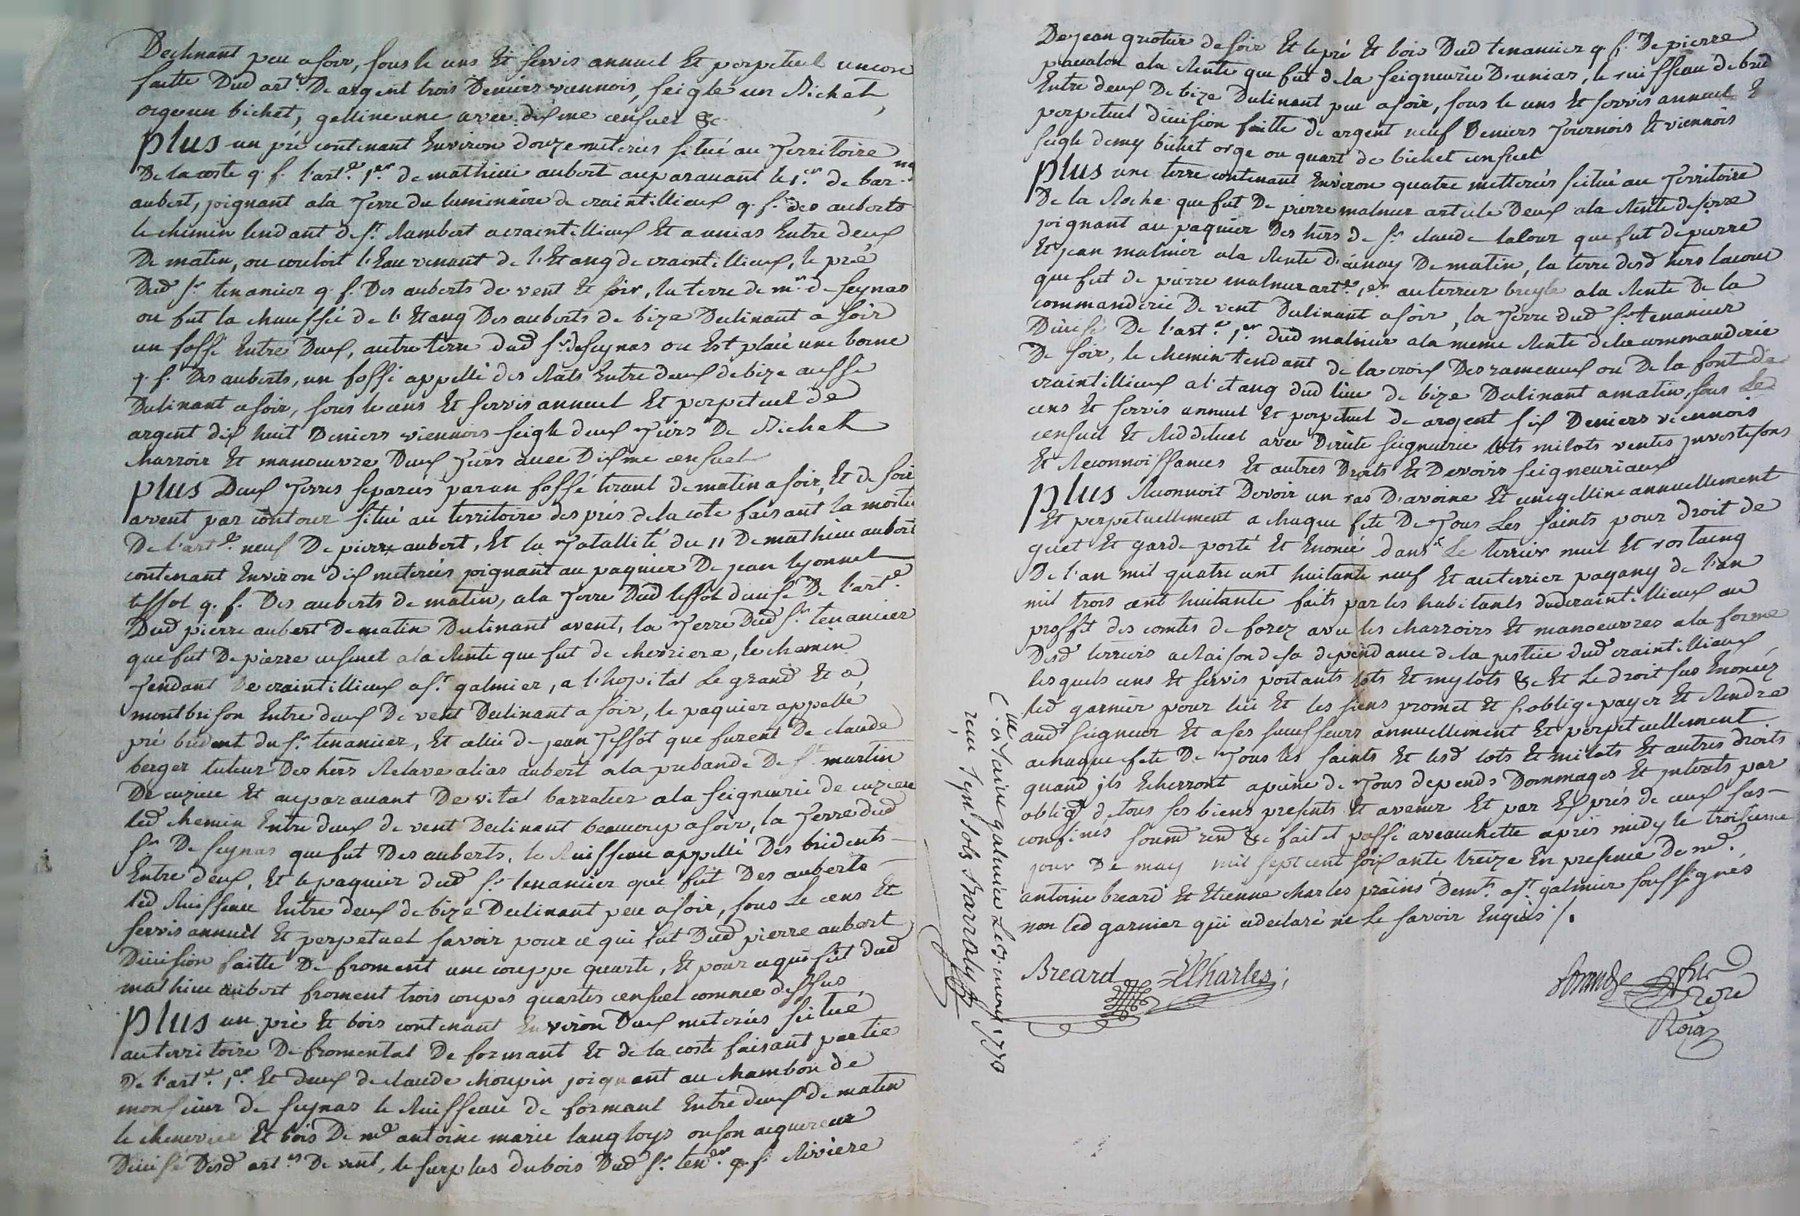 Declinant peu a soir, sous le cens Et servis annuel Et perpetuel encore
faitte Dud art.e De argent trois Deniers viennois, seigle un Bichet,
orge un bichet, gelline une avec disme censuel &c
plus un pré contenant Environ douze meterées situé au Territoire
De la coste q. f. l'art.e 1.er de mathieu aubert auparavant le 1.er de bar.my
aubert, joignant a la Terre du luminaire de craintillieux q. f. des auberts
le chemin tendant de S.t Rambert a craintillieux Et a unias Entre deux
De matin, ou couloit l'Eau venant de l'Etang de craintillieux, le pré
Dud S.r tenancier q. f. Des auberts de vent Et soir, la terre de m.r de seynas
ou fut la chaussée de l'Etang Des auberts de bize Declinant a soir
un fossé Entre Deux, autre terre dud S.r de seynas ou Est placé une borne
q. f. Des auberts, un fossé appellé des Rats Entre deux de bize aussi
Declinant a soir, sous le cens Et servis annuel Et perpetuel de
argent dix huit Deniers viennois seigle deux Tiers De Bichet
charroir Et manoeuvre Deux Tiers avec Disme censuel
plus Deux Terres separées par un fossé tirant de matin a soir, Et de soir
a vent par contour situé au territoire des pres de la cote faisant la moitié
De l'art.e neuf De pierre aubert, Et la Totallité du 11 De mathieu aubert
contenant Environ dix meterées joignant au paquier De jean lyonnet
tessot q. f. Des auberts de matin, a la Terre Dud tessot divise De l'art.e
Dud pierre aubert De matin Declinant a vent, la Terre Dud S.r tenancier
que fut De pierre a la Rente que fut de chevriere, le chemin
Tendant De craintillieux a S.t galmier, a l'hopital le grand Et a
montbrison Entre deux De vent Declinant a soir, le paquier appellé
pré bident du S.r tenancier, Et celui de jean Tessot que furent De claude
berger tuteur Des hers Relave alias aubert a la prebande De S.t martin
De cuzieu Et auparavant De vital barratier a la seigneurie de cuzieu
led chemin Entre deux de vent Declinant beaucoup a soir, la Terre dud
S.r De seynas que fut Des auberts, le Ruisseau appellé Des bridents
Entre deux, Et le paquier dud S.r tenancier que fut Des auberts
led Ruisseau Entre deux de bize Declinant peu a soir, sous Le cens Et
servis annuel Et perpetuel savoir pour ce qui fut Dud pierre aubert
Division faitte De froment une couppe quarte, Et pour ce qui fut dud
mathieu aubert froment trois coupes quartes censuel comme dessus
plus un pré Et bois contenant Environ Deux meterées situé
au territoire De fromental De formant Et de la coste faisant partie
De l'art.e 1.er Et deux de claude choupin joignant au chambon de
monsieur de seynas le Ruisseau de formant Entre deux de matin
le chenevier Et bois De m.e antoine marie langloys ou son acquereur
Divise Desd art.es De vent, le surplus du bois Dud S.r ten.er q. f. Riviére
De jean quotier de soir Et le pré Et bois Dud tenancier q. f. De pierre
pavalon a la Rente que fut de la seigneurie D'unias, le ruisseau de
Entre deux De bize Declinant peu a soir, sous le cens Et servis annuel Et
perpetuel division faitte de argent neuf Deniers Tournois Et viennois
seigle demy bichet orge ou quart de bichet censuel
plus une terre contenant Environ quatre metterées situé au Territoire
De la Roche que fut De pierre malmer article Deux a la Rente de
joignant au paquier Des hers de S.r claude lacour que fut de pierre
Et jean malmier a la Rente d'ainay De matin, la terre desd hers lacour
que fut de pierre malmer art.e 1.er au terrier a la Rente De la
commanderie De vent Declinant a soir, la Terre dud S.r tenancier
Divise De l'art.e 1.er dud malmier a la meme Rente de la commanderie
De soir, le chemin tendant de la croix Des rameaux ou De la font de
craintillieux a l'etang dud lieu de bize Declinant a matin, sous Led
cens Et servis annuel Et perpetuel de argent six Deniers viennois
censuel Et Reddituel avec Directe seigneurie lots milots ventes investisons
Et Reconnoissances Et autres Droits Et Devoirs seigneuriaux
plus Reconnoit Devoir un ras D'avoine Et une gelline annuellement
Et perpetuellement a chaque fete De Tous Les saints pour droit de
guet Et garde porté Et Enoncé dans Le terrier Et rostaing
De l'an mil quatre cent huitante neuf Et au terrier pagany de l'an
mil trois cent huitante faits par les habitants dud craintillieux au
proffit des comtes de forez avec les charroirs Et manoeuvres a la forme
Desd terriers a Raison de sa dependance de la justice dud craintillieux
lesquels cens Et servis portants lots Et mylots &c Et Le droit sus Enoncés
led garnier pour lui Et les siens promet Et s'oblige payer Et Rendre
aud Seigneur Et a ses successeurs annuellement Et perpetuellement
a chaque fete De Tous les saints Et lesd lots Et milots Et autres droits
quand ils Echerront a peine de Tous depends Dommages Et interets par
oblig.on de tous ses biens presents Et avenir Et par Exprés de ceux sus-
confinés soumd ren &c fait et passé a veauchette aprés midy le troisieme
jour De may mil sept cent soixante treize En presence De m.e
antoine breard Et Etienne charles D a S.t galmier soussignés
non led garnier qui a declaré ne le savoir Enquis /.
Breard EtCharles
Roia
C.olé a Saint galmier Le 9. may 1773
reçu sept sols Barralys